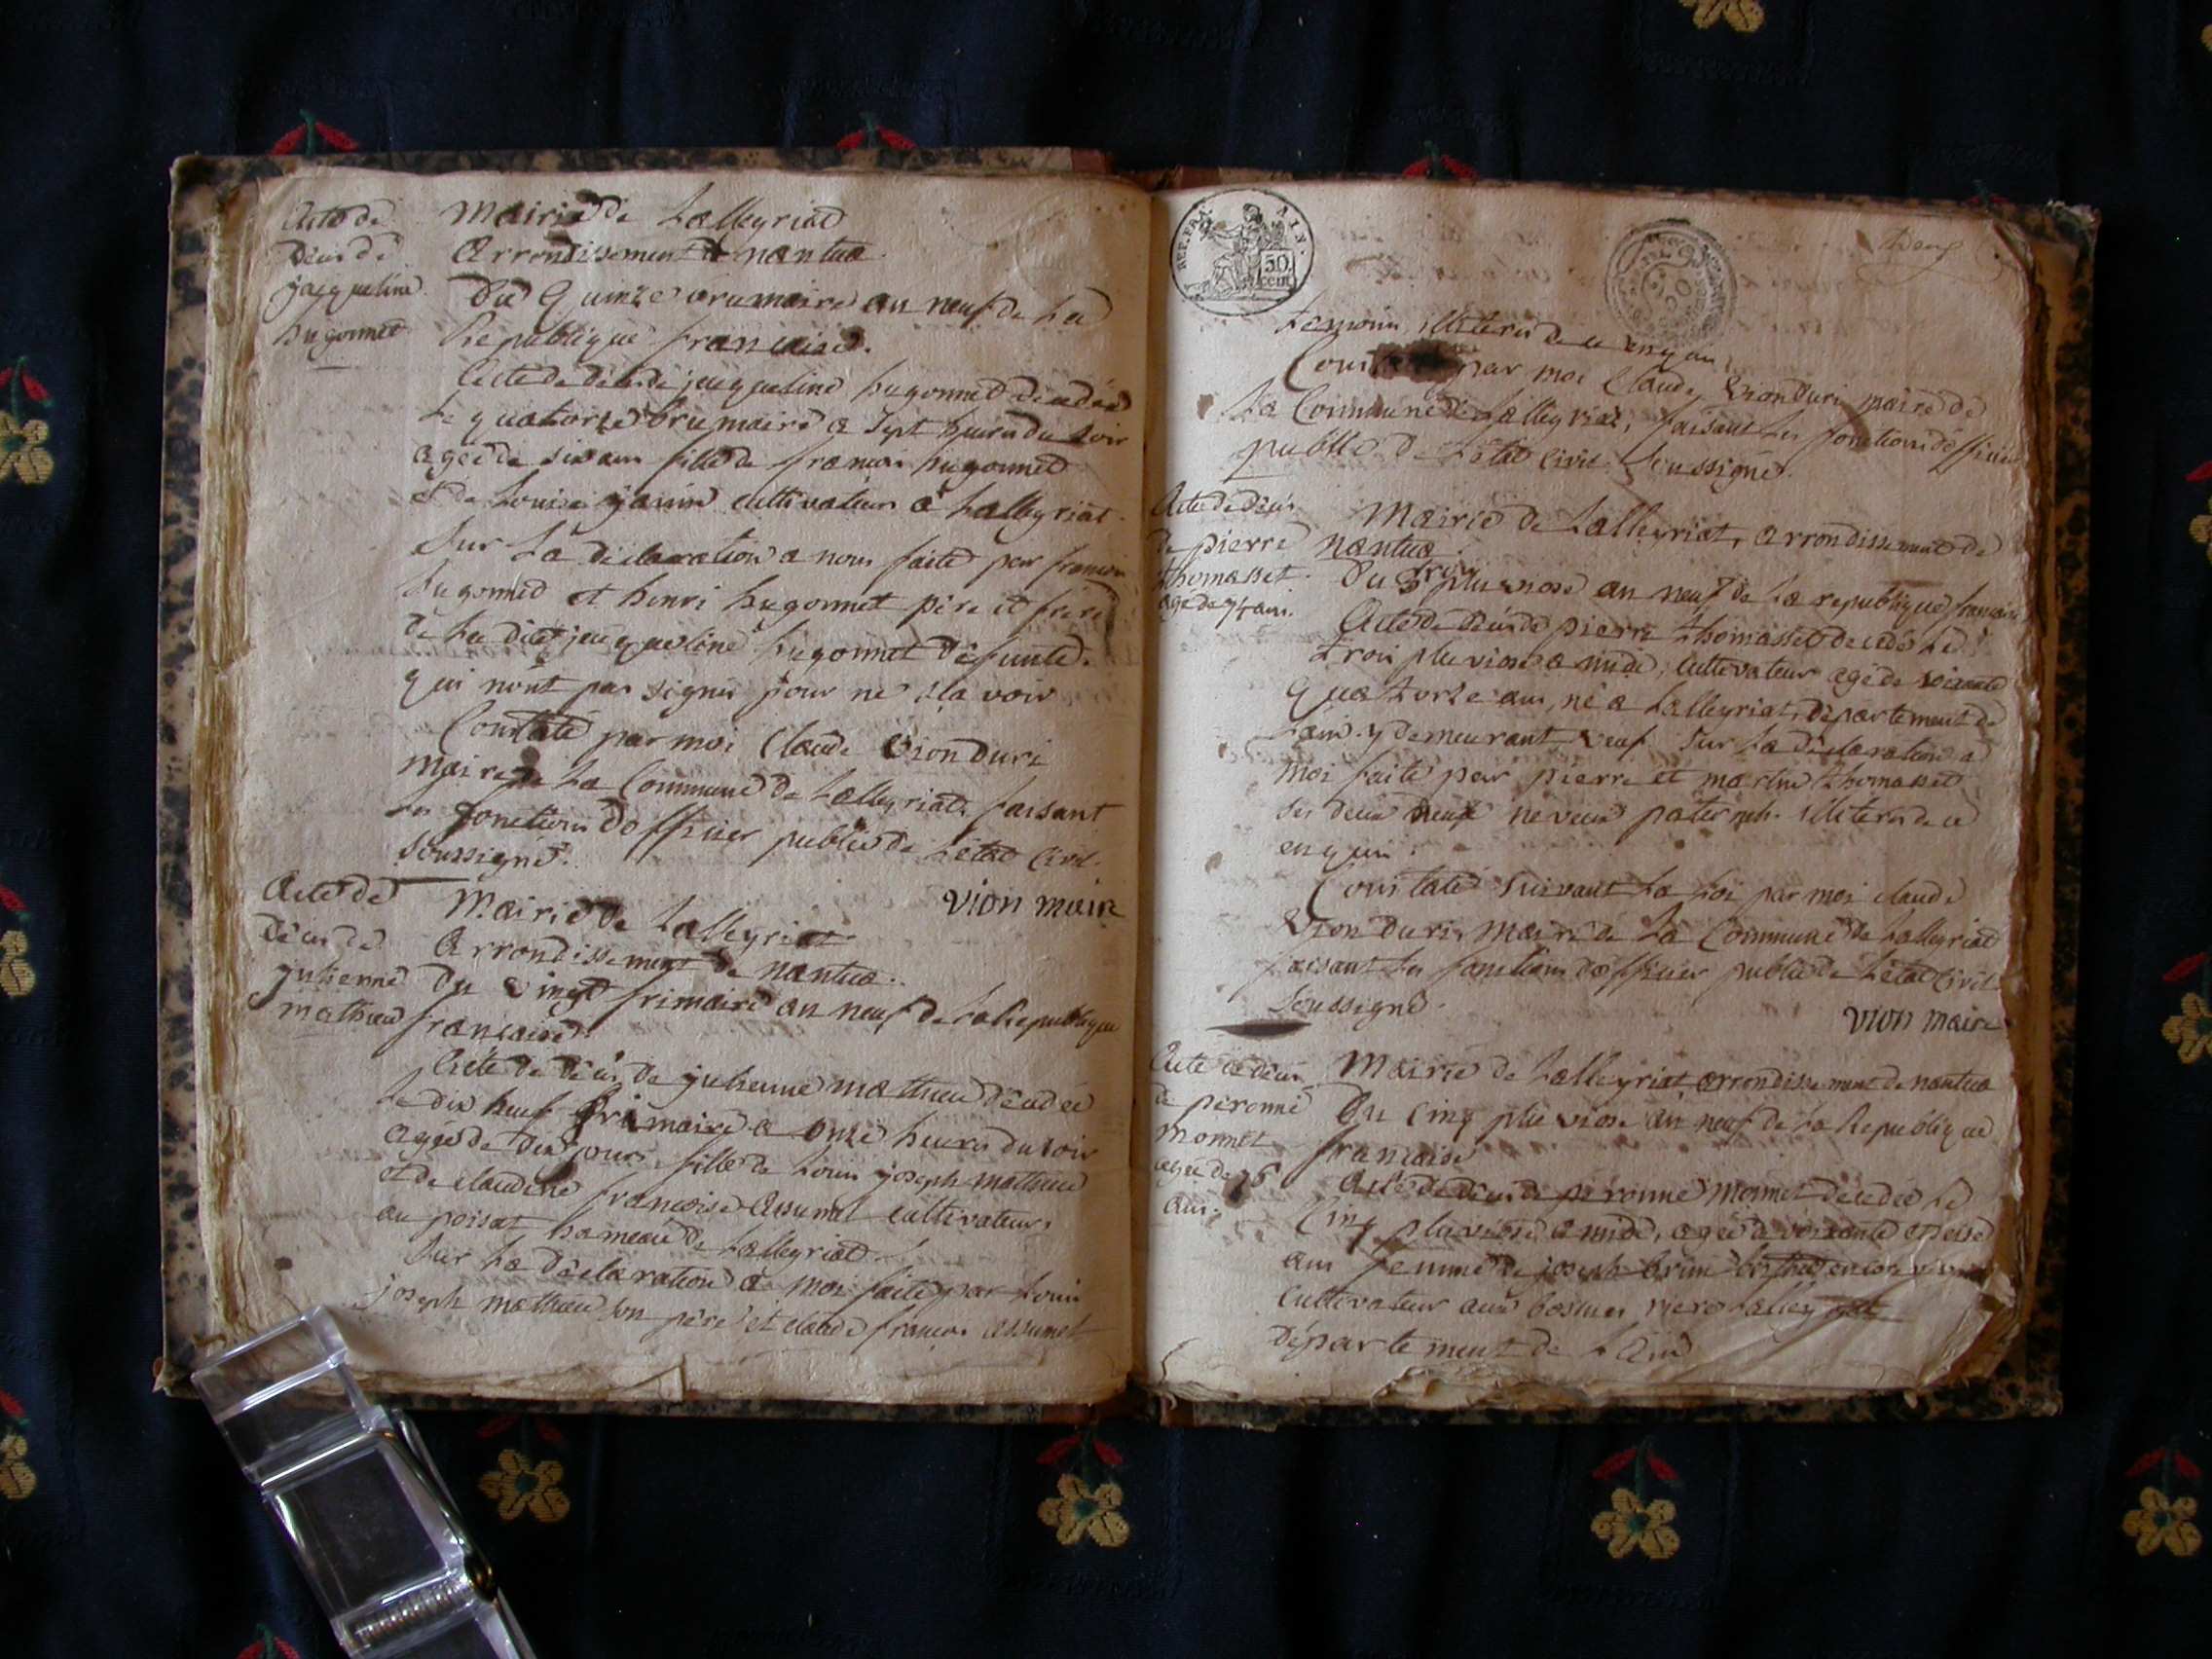 Acte de
Décès de
jacqueline
hugonnet
Mairie de Lalleyriat
arrondissement de nantua
Du Quinze brumaire an neuf de La
Republique française.
Acte de décès de jacqueline hugonnet décédée
Le quatorze brumaire a Sept heures du soir
agée de six ans fille de francois hugonnet
et de Louise jannin cultivateurs a Lalleyriat.
Sur La déclaration a nous faite par francois
hugonnet et henri hugonnet père et frère
de La dite jacqueline hugonnet défunte.
qui n'ont pas signés pour ne sça voir
Constaté par moi Claude Vionduri
Maire de La Commune de Lalleyriat, faisant
Les fonctions d'officier public de L'état Civil
Soussigné.
vion maire
Acte de
Décès de
julienne
mathieu
Mairie de Lalleyriat
Arrondissement de nantua.
Du vingt frimaire an neuf de La Republique
française
Acte de décès de julienne mathieu décédée
Le dix neuf frimaire a onze heures du soir
agée de dix jours, fille de Louis joseph mathieu
et de claudine françoise assumel cultivateurs
au poisat hameau de Lalleyriat
Sur La déclaration a moi faite par Louis
joseph mathieu son père et claude francois assumel
REP. FRA. AIN.
50 cent
temoins illiterés de ce enquis
Constaté par moi Claude Vionduri maire de
La Commune de Lalleyriat, faisant Les fonctions d'officier
public de L'état Civil Soussigné.
Acte de décès
de pierre
thomasset.
agé de 74 ans.
Mairie de Lalleyriat, arrondissement de
nantua.
Du trois pluviose an neuf de La republique française
Acte de décès de pierre thomasset décédé Le
trois pluviose a midi, cultivateur agé de soixante
quatorze ans, né a Lalleyriat, département de
Lain y demeurant veuf, Sur La déclaration a
moi faite par pierre et martin thomasset
ses deux neveux paternels. illiterés de ce
enquis.
Constaté suivant La Loi par moi claude
Vionduri, maire de La Commune de Lalleyriat
faisant Les fonctions d'officier public de L'état Civil
Soussigné.
vion maire
Acte de décès
de peronne
Monnet
agée de 76
ans.
Mairie de Lalleyriat, arrondissement de nantua
Du cinq pluviose an neuf de La Republique
française
Acte de décès de peronne Monnet décédée Le
cinq pluviose a midi, agée de soixante et seize
ans femme de joseph brun
cultivateur aux Lalleyriat
département de L'Ain